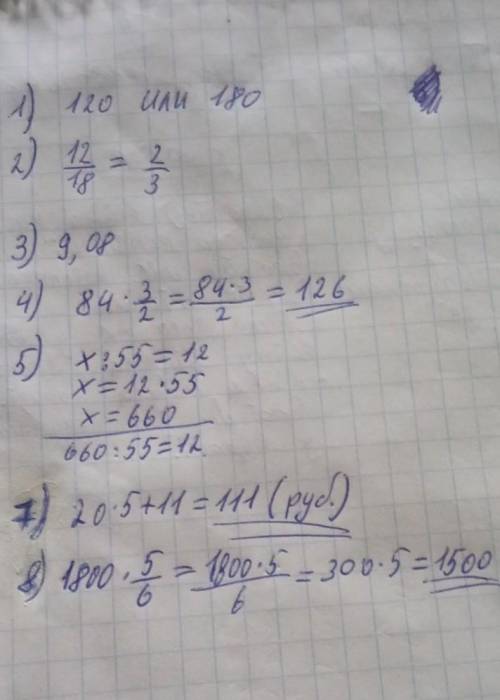 1) 120 или 180
2) 12/18 = 2/3
3) 9,08
4) 84 · 3/2 = 84·3/2 = 126
5) x:55=12
x=12·55
x=660
660:55=12
7) 20·5+11=111 (руб.)
8) 1800 · 5/6 = 1800·5/6 = 300·5=1500